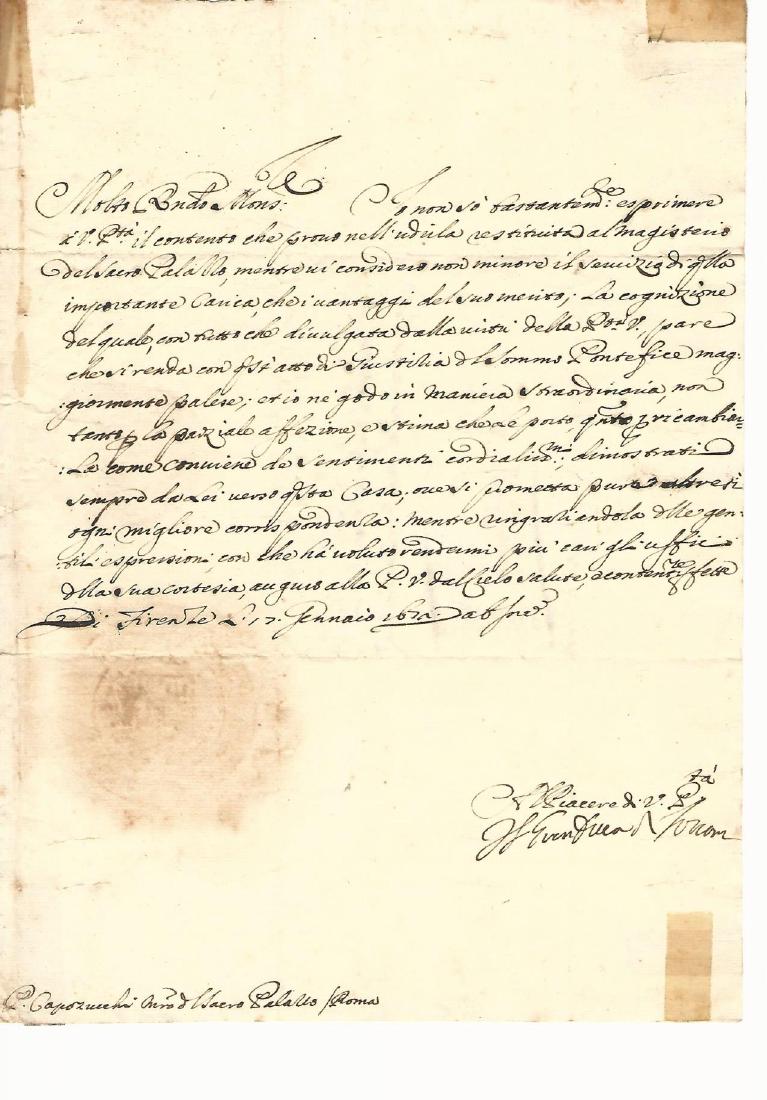 Molto Rndo Mons:re Io non sò bastantem:te esprimere
à V. Ptà il contento che provo nell'udirla restituita al Magisterio
del Sacro Palazzo, mentre vi considero non minore il servizio di qlla
importante Carica, che i vantaggi del suo merito; La cognizione
del quale, con tutto che divulgata dalla virtù della Ptà V., pare
che si renda con qst'atto di Giustilia dl Sommo Pontefice mag:
:giormente palese; et io ne godo in maniera straordinaria, non
tanto p la parziale affezione, e stima che le porto, qnto p ricambiar=
:La come conviene de sentimenti cordialiss:mi, dimostrati
sempre da Lei verso qsta Casa, ove si prometta pure altresi
ogni migliore corrispondenza: Mentre ringraziandola dlle gen:
:tili espressioni con che hà voluto rendermi più cari gli uffici
dlla sua cortesia, auguro alla P. V. dal Cielo salute, e contente
Di Firenze L. 17. Gennaio ab Inc.
Al Piacere di V. Ptà
Il Gran Duca di Toscana
P. Capozucchi Mro dl Sacro Palazzo / Roma